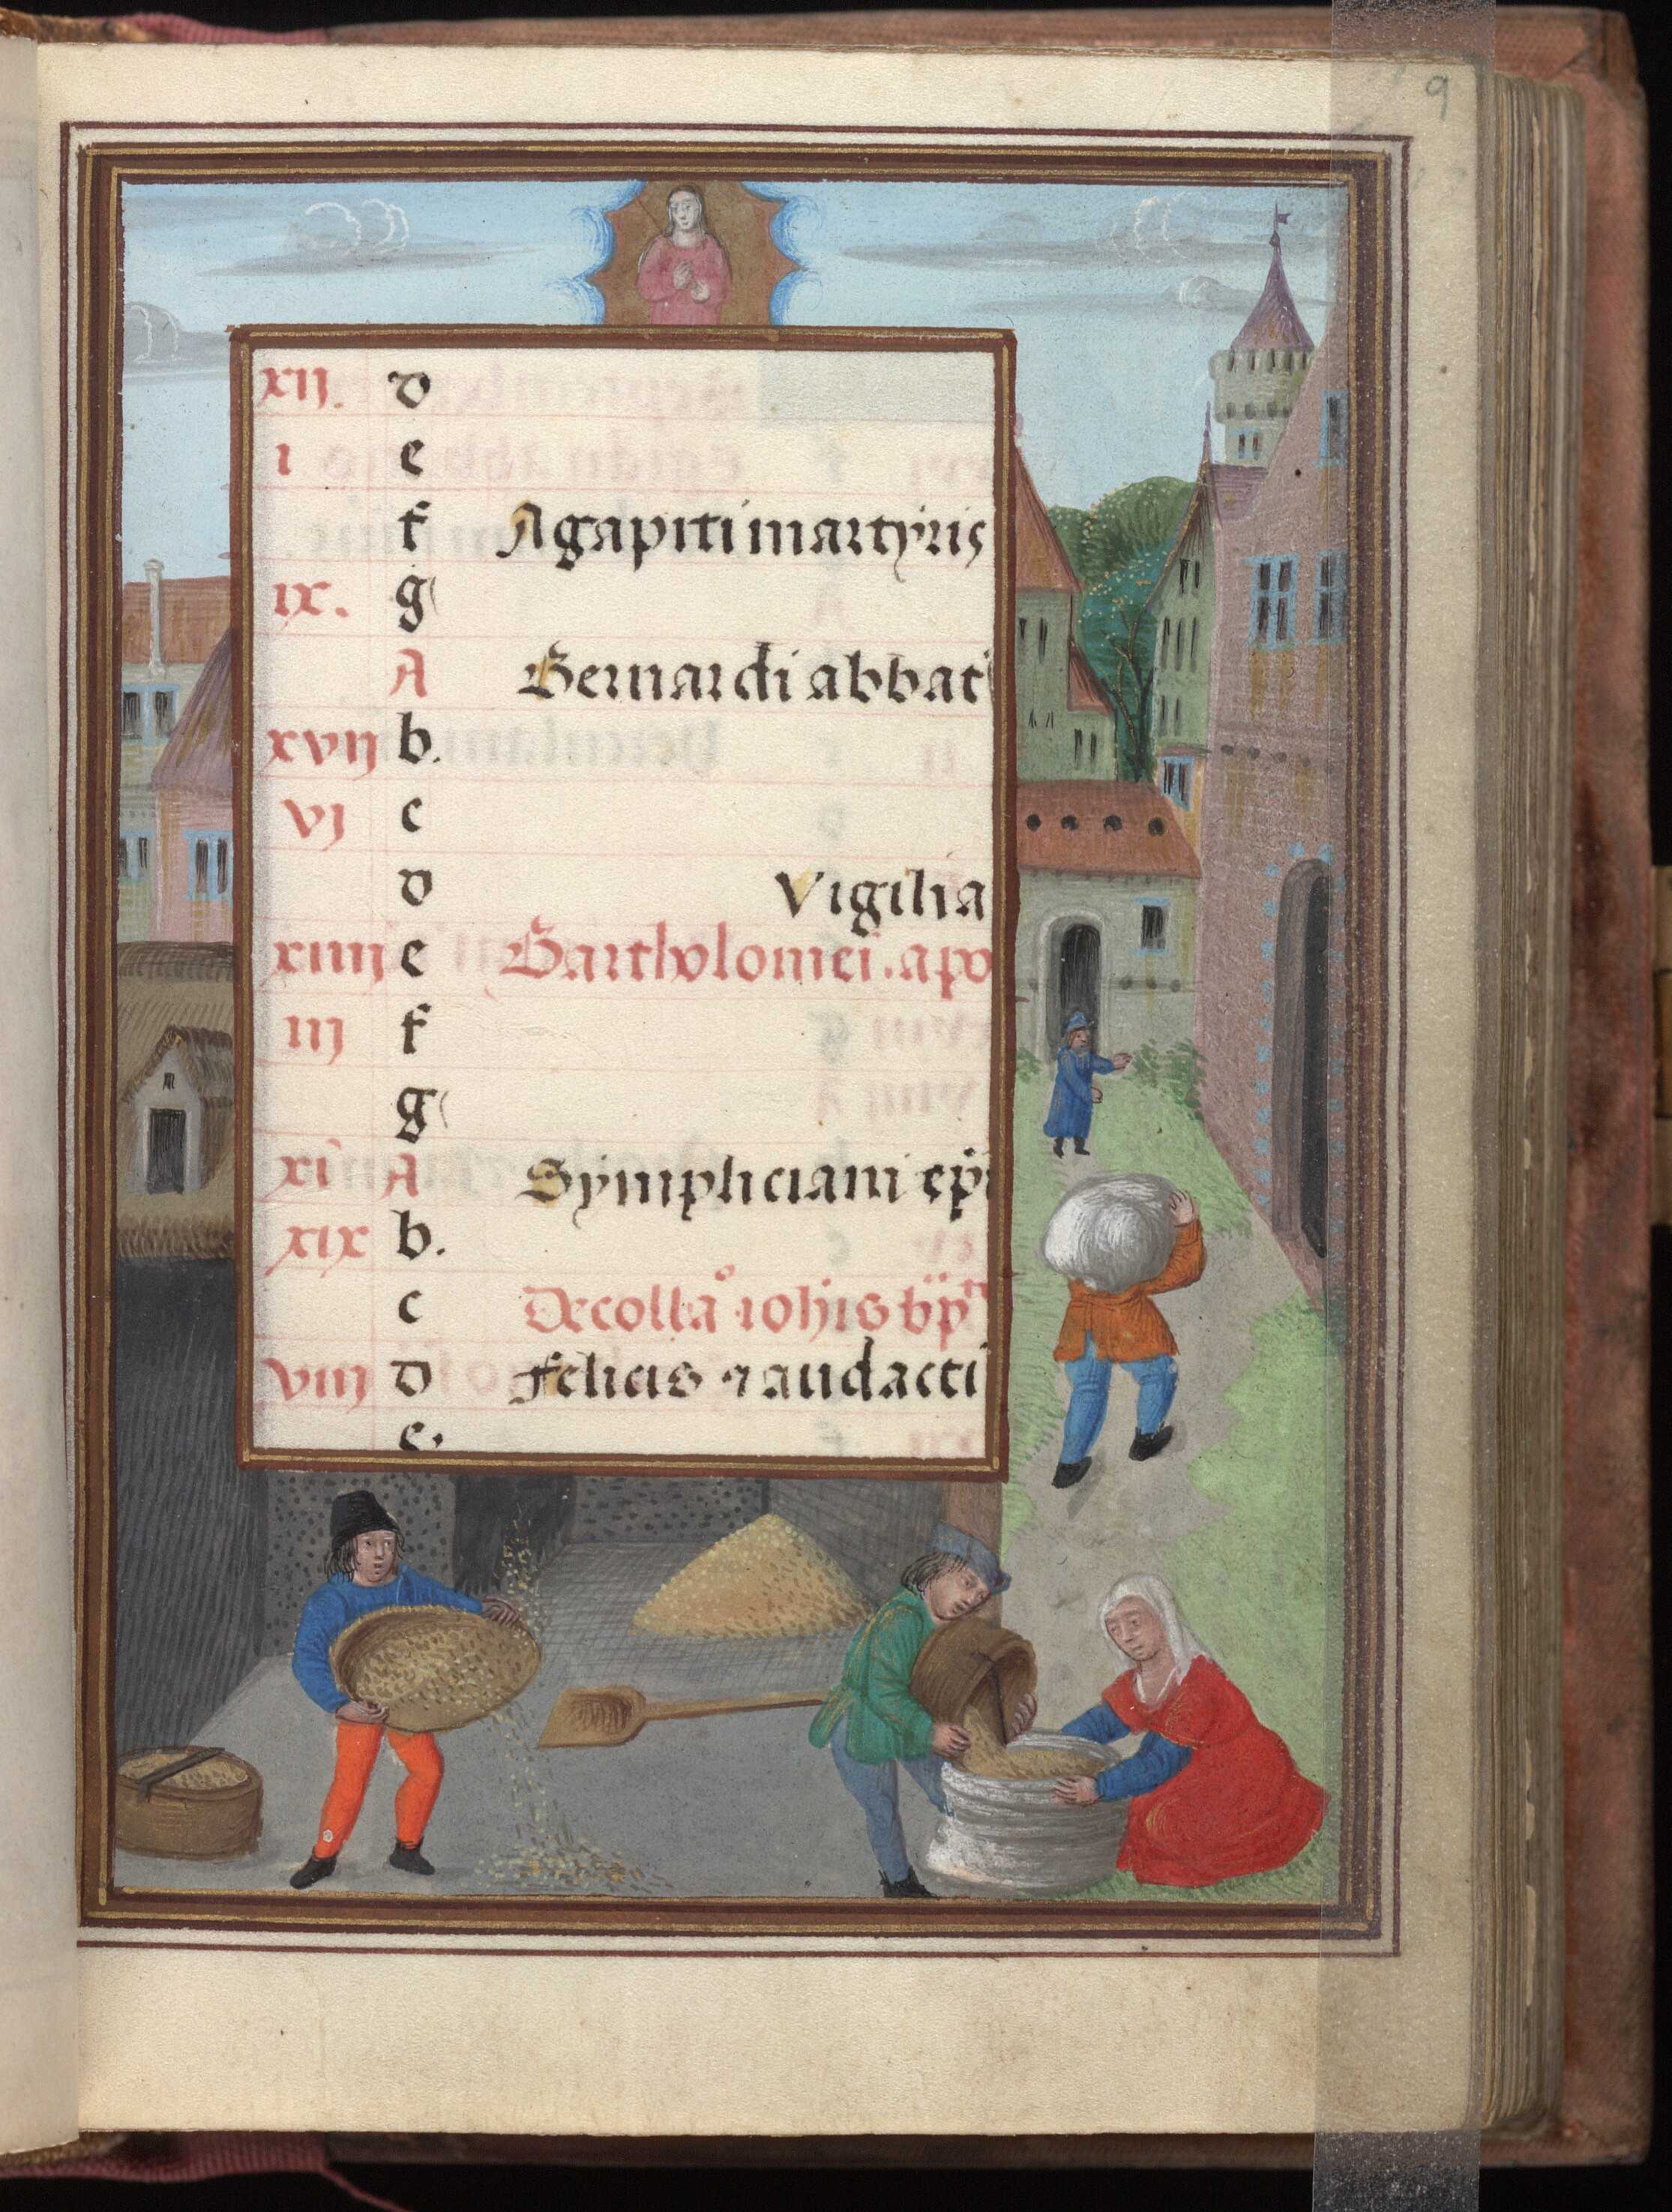 9
xij. d
i e
f Agapiti martyris
ix. g
A Bernardi abbat
xvij b.
vj c
d Vigilia
xiiij e Bartholomei. apo
iij f
g
xi A Sympliciani ep̄i
xix b.
c Decollaº iohis bp̄
viij d felicis ⁊ audacti
e.